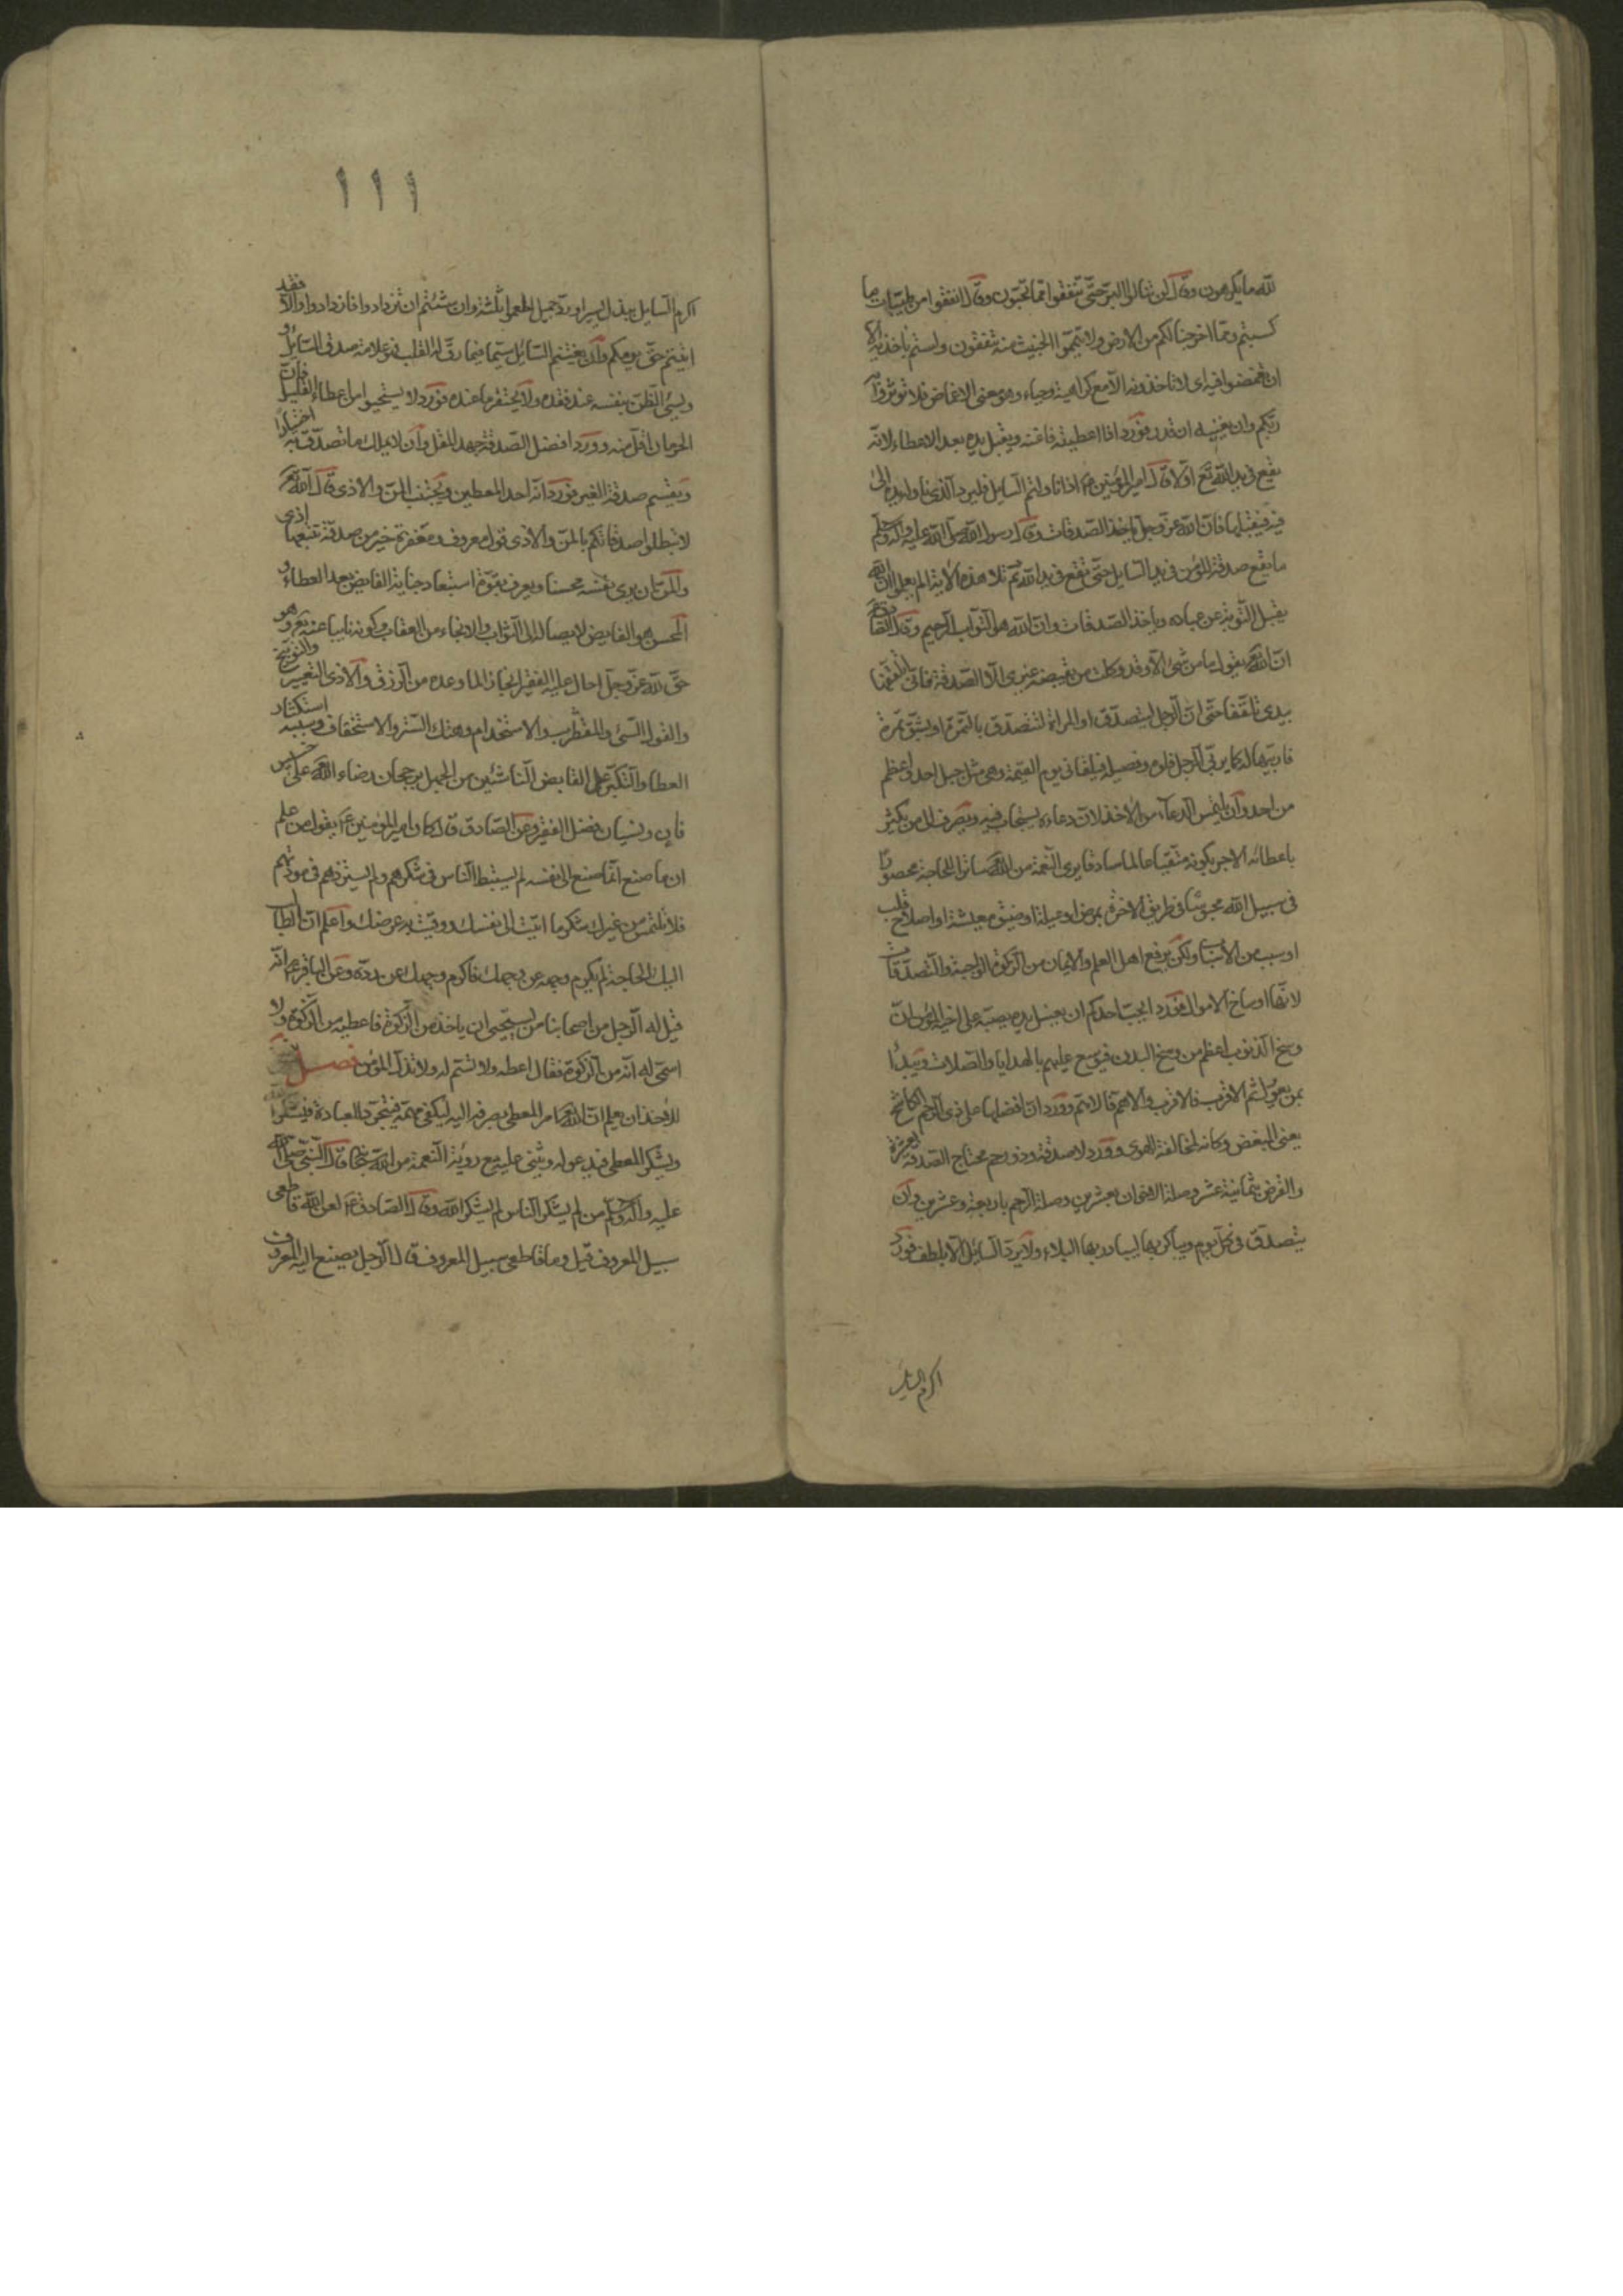 لله ما يكرهون وقال لن تنالوا البر حتى تنفقوا مما تحبون وقال انفقوا من طيبات ما
كسبتم ومما اخرجنا لكم من الارض ولا تيمموا الخبيث منه تنفقون ولستم باخذيه الا
ان تغمضوا فيه اى لا تاخذونه الا مع كراهية وحياء وهو معنى الاغماض فلا تؤثروا به
ربكم وان يغنيه ان قدر فورد اذا اعطيته فاغنه ويقبل يده بعد الاعطاء لانه
يقع فى يد الله تع اولا قال امير المؤمنين ع اذا ناولتم السايل فليرد الذى ناوله يده الى
فيه فيقبلها فان الله عز وجل ياخذ الصدقات وقال رسول الله صلى الله عليه واله وسلم
ما تقع صدقة المؤمن فى يد السايل حتى تقع فى يد الله ثم تلا هذه الاية الم يعلموا ان الله هو
يقبل التوبة عن عباده وياخذ الصدقات وان الله هو التواب الرحيم وقال الصادق ع
ان الله تع يقول ما من شئ الا وقد وكلت من يقبضه غيرى الا الصدقة فانى اتلقفها
بيدى تلقفا حتى ان الرجل ليتصدق او المراة لتتصدق بالتمرة او بشق تمرة
فاربيها له كما يربى الرجل فلوه وفصيله فيلقانى يوم القيمة وهى مثل جبل احد واعظم
من احد وان يلتمس الدعاء من الاخذ لان دعاءه يستجاب فيه ويصرف الى من يكثر
باعطائه الاجر بكونه متقيا عالما صادقا يرى النعمة من الله ساترا للحاجة محصورا
فى سبيل الله محبوسا فى طريق الاخرة بمرض او عيلة او ضيق معيشة او اصلاح قلب
او سبب من الاسباب ولكن يرفع اهل العلم والايمان من الزكوة الواجبة والتصدقات
لانها اوساخ الاموال فورد ايحب احدكم ان يغسل يده يصبه على اخيه المؤمن ان
وسخ الذنوب اعظم من وسخ البدن فيوسع عليهم بالهدايا والصلات ويبدأ
بمن يعول ثم الاقرب فالاقرب والاهم فالاهم وورد ان افضلها على ذى الرحم الكاشح
يعنى المبغض وكانه لمخالفة الهوى وورد لا صدقة وذو رحم محتاج الصدقة بعشرة
والقرض بثمانية عشر وصلة الاخوان بعشرين وصلة الرحم باربعة وعشرين وان
يتصدق فى كل يوم ويباكر بها ليبادر بها البلاء ولا يرد السائل الا بلطف فورد
اكرم السايل
١١١
اكرم السايل ببذل يسير او رد جميل اطعموا ثلثة وان شئتم ان تزدادوا فازدادوا والا فقد
اديتم حق يومكم وان يغتنم السائل سيما فيما رق له القلب فهو علامة صدق السائل و
ويسئ الظن بنفسه عند فقده ولا يحتقر ما عنده فورد لا يستحيوا من اعطاء القليل فان
الحرمان اقل منه وورد افضل الصدقة جهد المقل وان لا يملك ما تصدق به اختيارا
ويقسم صدقة الغير فورد انه احد المعطين ويجتنب المن والاذى قال الله تع
لا تبطلوا صدقاتكم بالمن والاذى قول معروف ومغفرة خير من صدقة تتبعها اذى
والمن ان يرى نفسه محسنا ويعرف بقوة استبعاد جناية القابض بعد العطاء و
المحسن هو القابض لايصاله الى الثواب والانجاء من العقاب وكونه نايبا عنه تع وهو
حق لله عز وجل احال عليه الفقير انجازا لما وعده من الرزق والاذى التعيير والتوبيخ
والقول السئ والقطوب والاستخدام وهتك الستر والاستخفاف وسببه استكثار
العطاء والتكبر على القابض الناشئين من الجهل برجحان رضاء الله على خسيس
فان ونسيان فضل الفقر وعن الصادق قال كان امير المؤمنين ع يقول من علم
ان ما صنع انما صنع الى نفسه لم يستبط الناس فى شكرهم ولم يستزدهم فى مودتهم
فلا تلتمس من غيرك شكر ما اتيت الى نفسك ووقيت به عرضك واعلم ان الطالب
اليك الحاجة لم يكرم وجهه عن وجهك فاكرم وجهك عن رده وعن الباقر ع انه
قيل له الرجل من اصحابنا من يستحيى ان ياخذ من الزكوة فاعطيه من الزكوة ولا
اسمى له انه من الزكوة فقال اعطه ولا تسم له ولا تذل المؤمن فصل
للاخذ ان يعلم ان الله امر المعطى بصرفه اليه ليكفى مهمه فيتجرد للعبادة فيشكر الله
ويشكر المعطى فيدعو له ويثنى عليه مع روية النعمة من الله سبحانه قال النبى صلى الله
عليه واله وسلم من لم يشكر الناس لم يشكر الله وقال الصادق ع لعن الله قاطعى
سبيل المعروف قيل وما قاطعى سبيل المعروف قال الرجل يصنع اليه المعروف